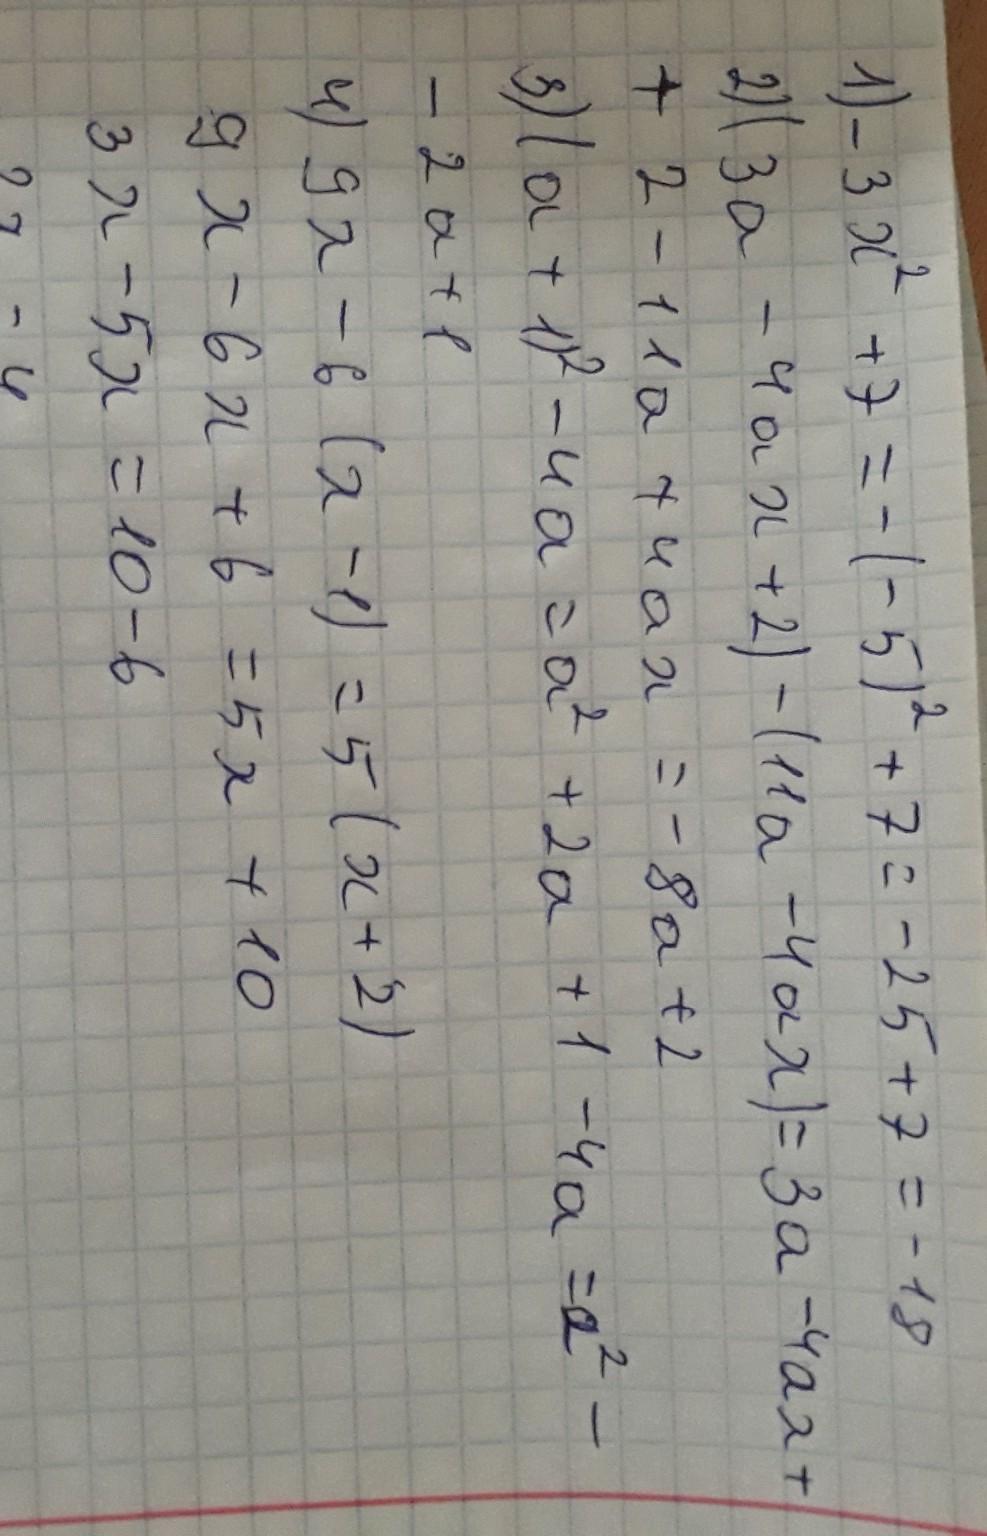 1) -3x² + 7 = -(-5)² + 7 = -25 + 7 = -18
2) (3a - 4ax + 2) - (11a - 4ax) = 3a - 4ax +
+ 2 - 11a + 4ax = -8a + 2
3) (a + 1)² - 4a = a² + 2a + 1 - 4a = a² -
- 2a + 1
4) 9x - 6 (x - 1) = 5 (x + 2)
9x - 6x + 6 = 5x + 10
3x - 5x = 10 - 6